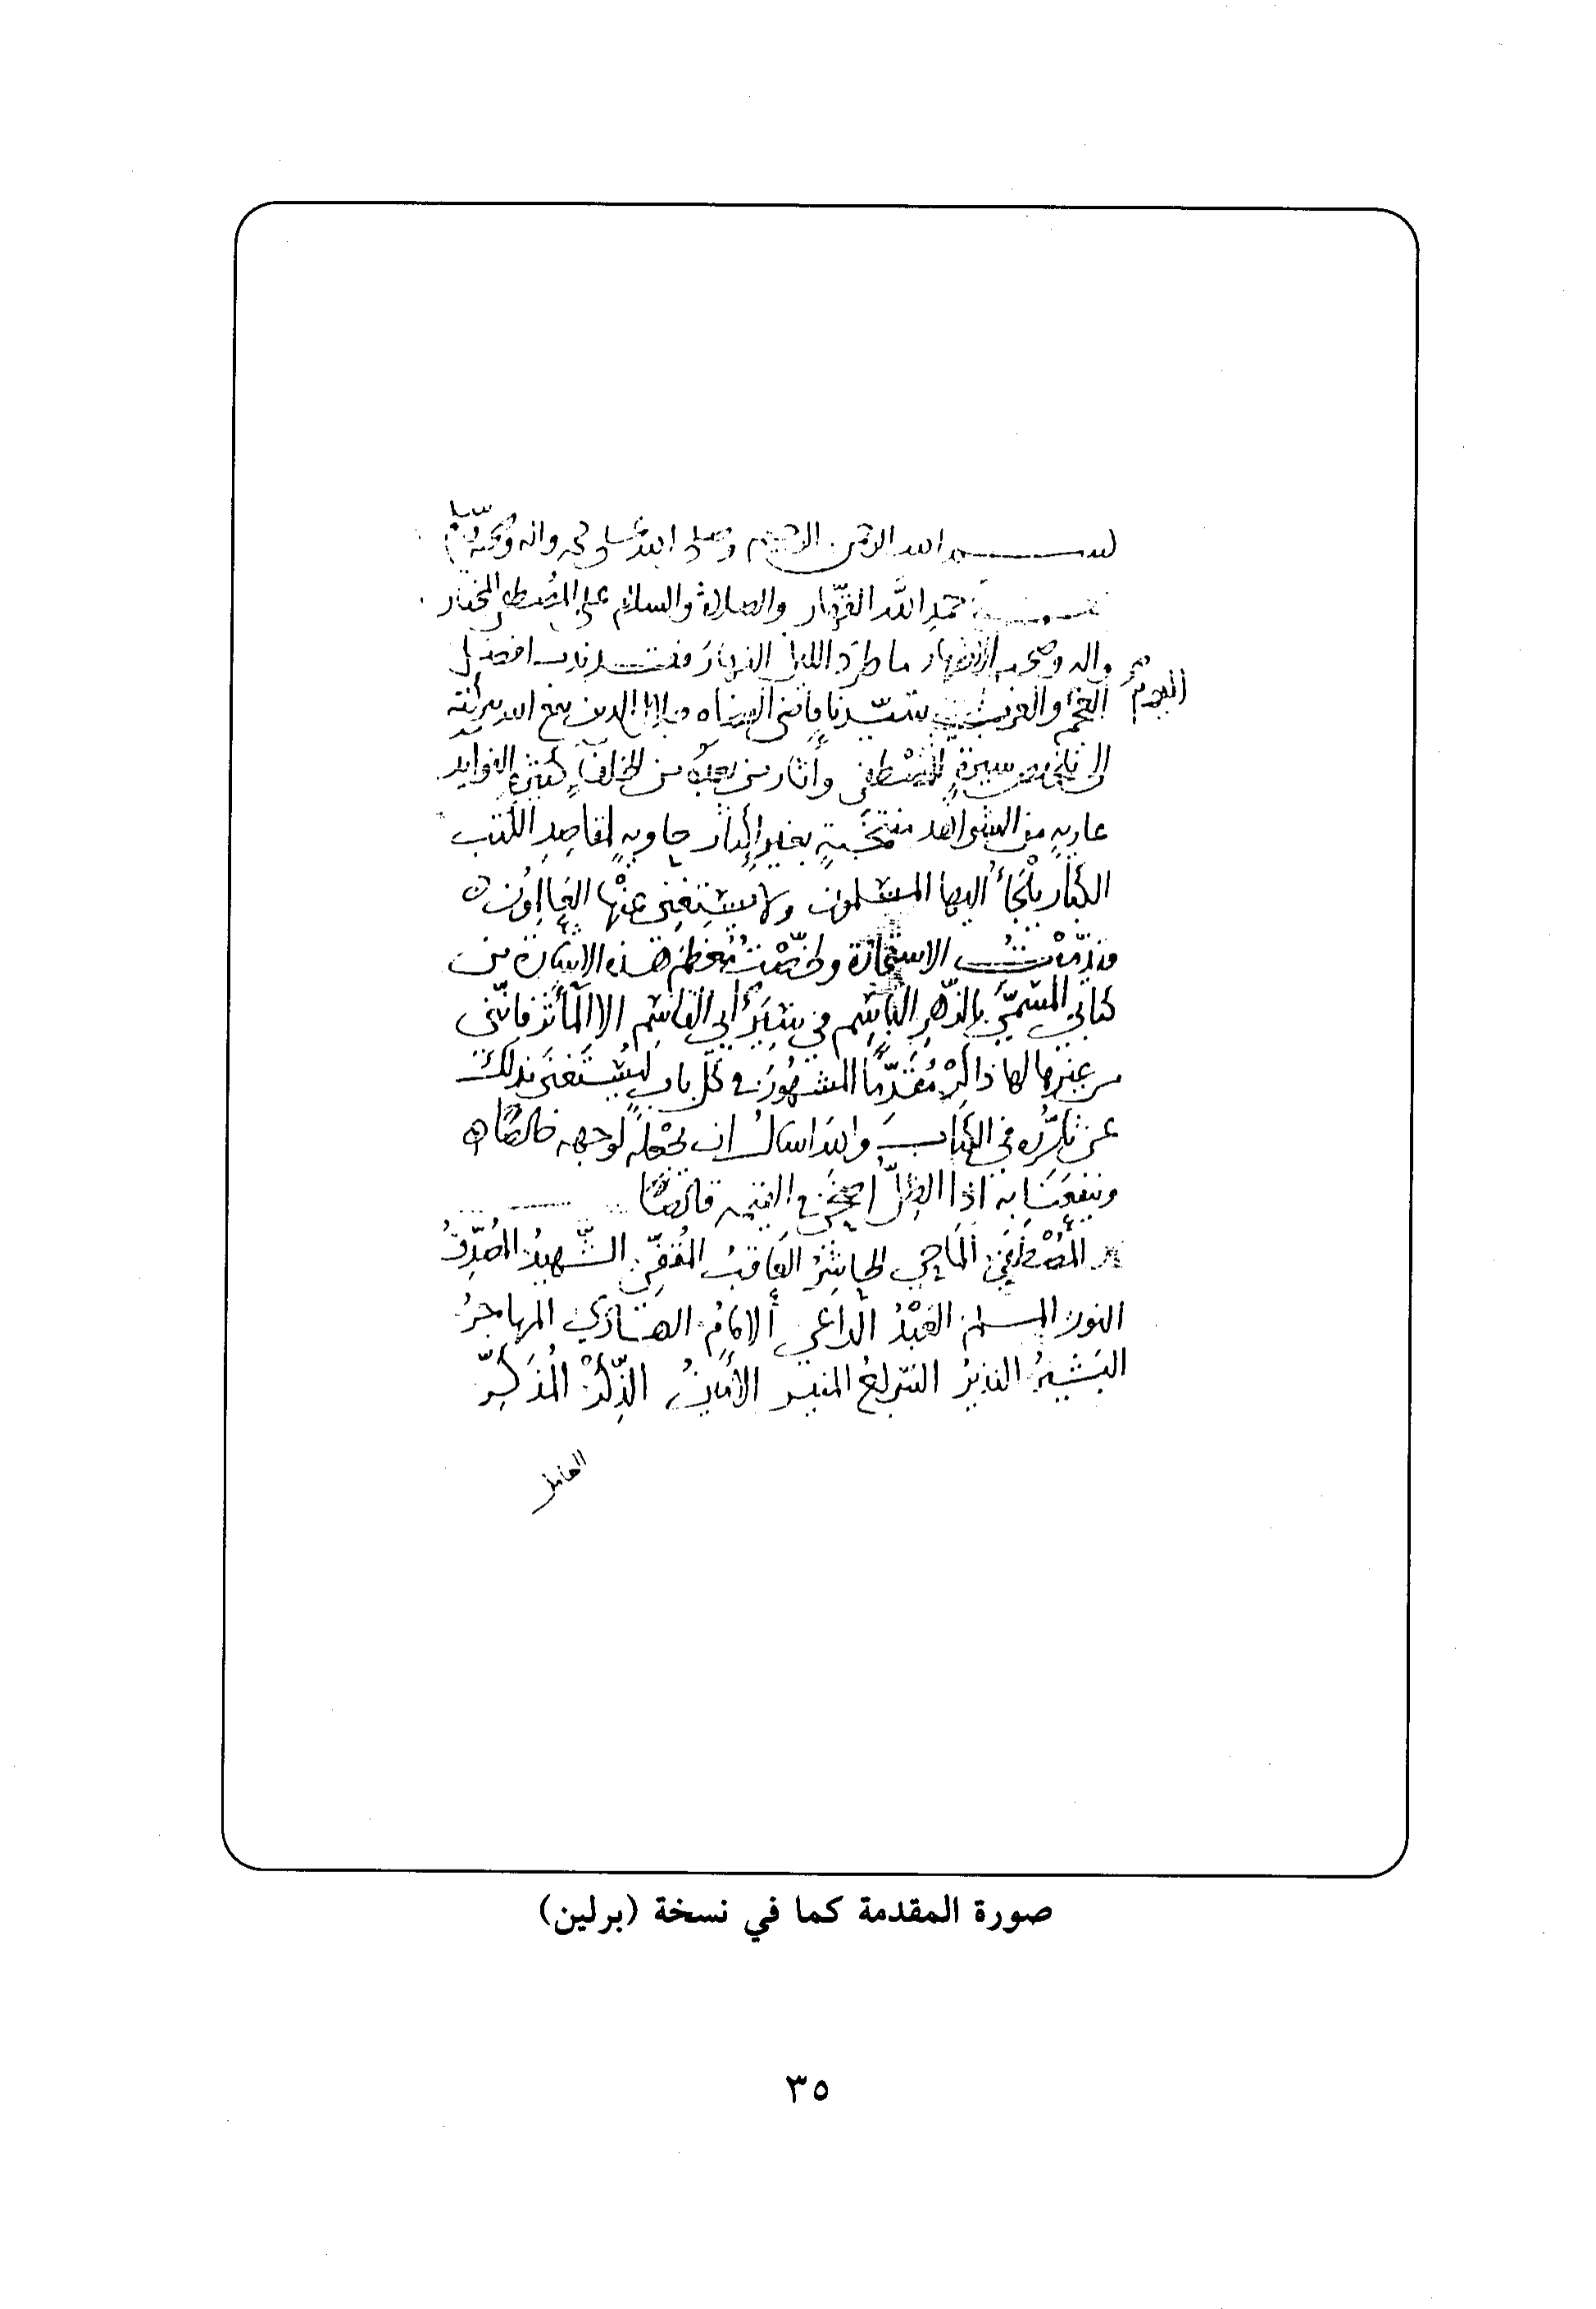 بسم الله الرحمن الرحيم وصلى الله على محمد واله وصحبه وسلم
حمد الله القهار والصلاة والسلام على المصطفى المختار
واله وصحبه الأطهار ما طرد الليل النهار فقد ندب افضل
العجم والعرب سيدنا قاضى القضاه جلال الدين
اليوم
الى تلخيص سيرةٍ للمصْطفى وآثار من بعده من الخلفآء كثيرةِ الفوايد
عاريه من الشواهد منتخَبةٍ بغير إكثار حاويهٍ لمقاصِدِ الكتب
الكبار يلْجَأُ اليها المسلمون ولا يستغني عنْها العَالِمُون ه
فقدّمْتُ الاستخارة ولخّصْتُ مُعْظم هذه الاشارة من
كتابي المسمَّى بالزّهرِ البَاسِم في سِيَرِ أبي القاسِم الا المآثر فانّني
من غيرها لها ذاكرٌ مُقدّمًا المشهُورَ في كلّ بابٍ ليُسْتَغنَى بذلك
عن تكرُّره في الكتاب والله اسال ان يجعله لوجهه خالصًا ه
وينفعَنا به اذا الظِلُّ اضحَى في القيمه قالصًا
المُصْطَفَى المَاحِي الحاشِرُ العَاقبُ المُقَفِّي الشَّهيدُ المُصَدِّقُ
النور المسلم العَبْدُ الداعي الامامُ الهادي المهاجرُ
البَشيرُ النذيرُ السّراجُ المنير الأمينُ الذِّكْرُ المُذَكِّرُ
العامل
صورة المقدمة كما في نسخة (برلين)
٣٥